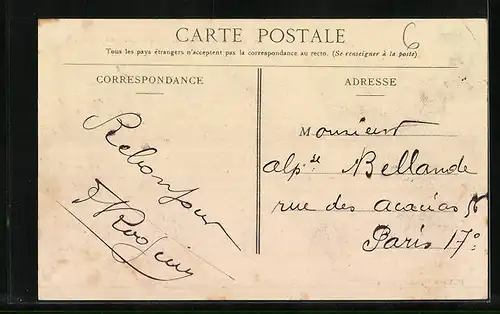 CARTE POSTALE
6
Tous les pays étrangers n'acceptent pas la correspondance au recto. (Se renseigner à la poste)
CORRESPONDANCE
ADRESSE
Rebonjour
Monsieur
alp.se Bellande
rue des acacias 56
Paris 17e